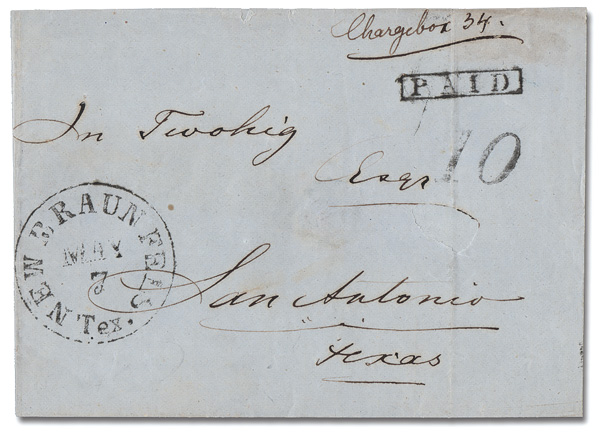 Chargebox 34.
PAID
10
In Twohig
Esqr
NEW BRAUNFELS
MAY
7
Tex.
San Antonio
Texas